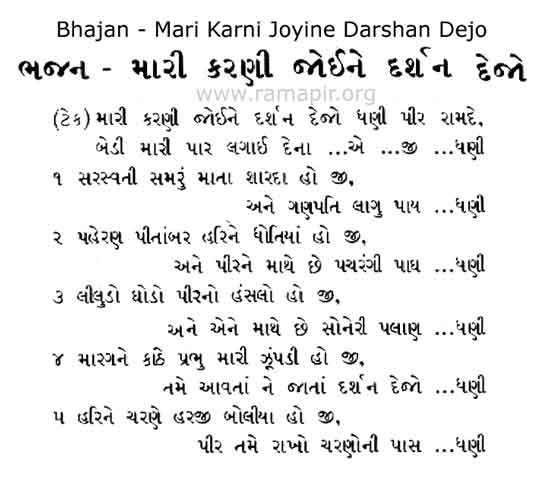 Bhajan - Mari Karni Joyine Darshan Dejo
ભજન - મારી કરણી જોઈને દર્શન દેજો
www.ramapir.org
(ટેક) મારી કરણી જોઈને દર્શન દેજો ધણી પીર રામદે,
બેડી મારી પાર લગાઈ દેના ...એ ...જી ...ધણી
૧ સરસ્વતી સમરું માતા શારદા હો જી,
અને ગણપતિ લાગુ પાય ...ધણી
૨ પહેરણ પીતાંબર હરિને ધોતિયાં હો જી,
અને પીરને માથે છે પચરંગી પાઘ ...ધણી
૩ લીલુડો ઘોડો પીરનો હંસલો હો જી,
અને એને માથે છે સોનેરી પલાણ ...ધણી
૪ મારગને કાંઠે પ્રભુ મારી ઝૂંપડી હો જી,
તમે આવતાં ને જાતાં દર્શન દેજો ...ધણી
૫ હરિને ચરણે હરજી બોલીયા હો જી,
પીર તમે રાખો ચરણોની પાસ ...ધણી